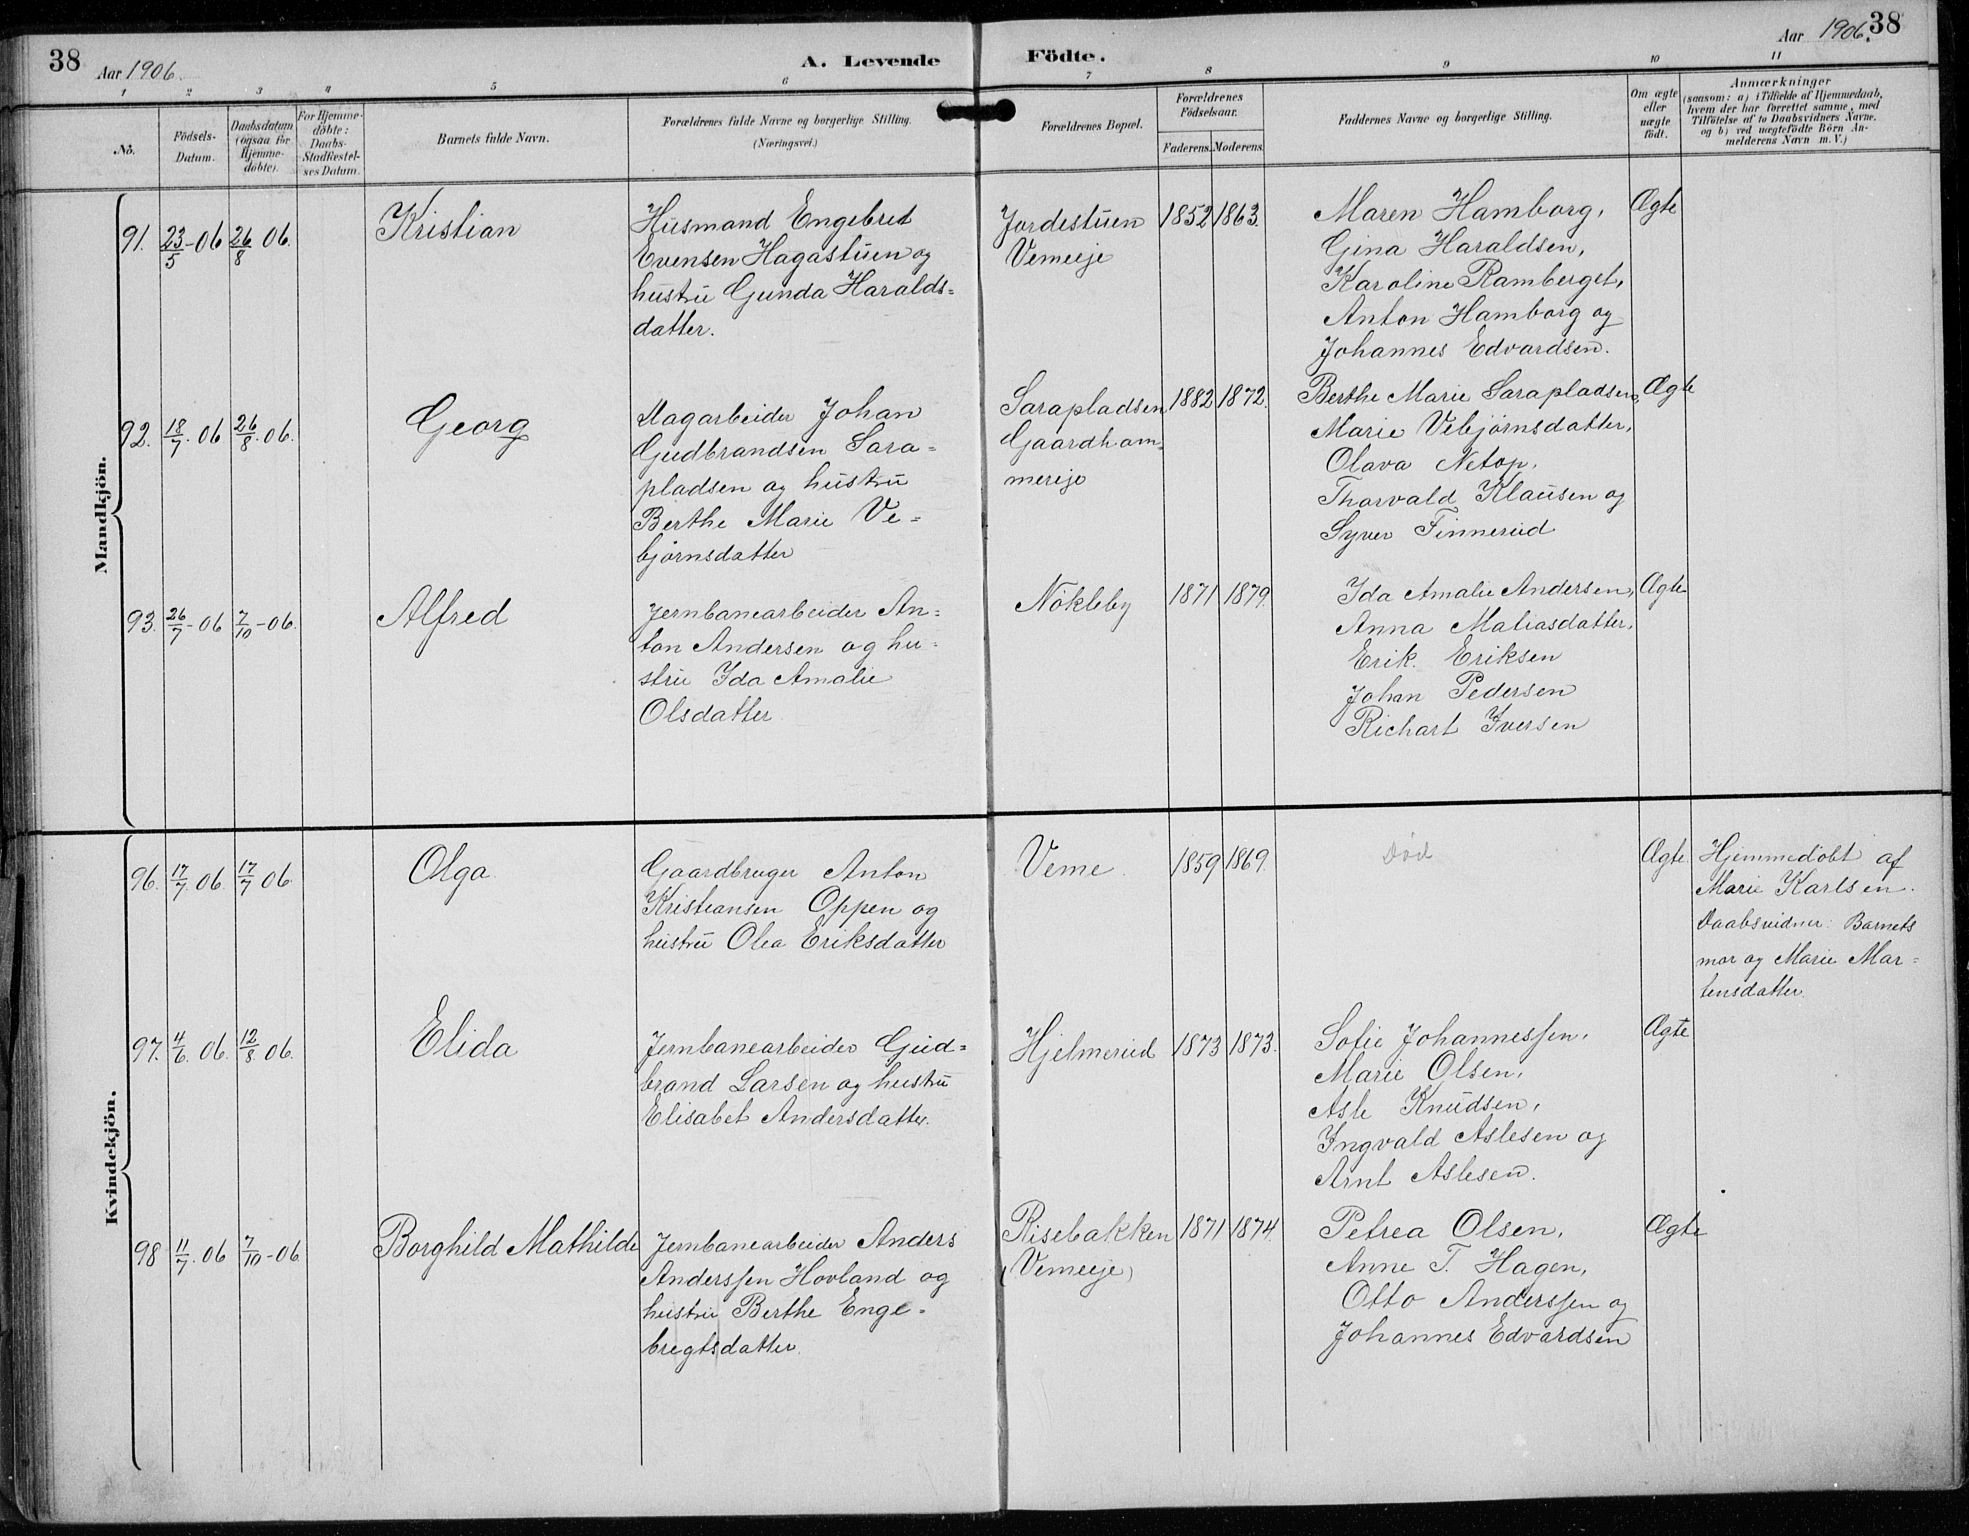 38
Aar 1906.
A. Levende
Födte.
Aar 1906.
38
1
2
3
4
5
6
7
8
9
10
11
No.
Födsels-
Datum.
Daabsdatum
(ogsaa for
Hjemme-
döbte).
For Hjemme-
döbte:
Daabs-
Stadfæstel-
ses Datum.
Barnets fulde Navn.
Forældrenes fulde Navne og borgerlige Stilling.
(Næringsvei.)
Forældrenes Bopæl.
Forældrenes
Födselsaar.
Faderens.
Moderens.
Faddernes Navne og borgerlige Stilling.
Om ægte
eller
uægte
födt.
Anmærkninger
(saasom: a) i Tilfælde af Hjemmedaab,
hvem der har forrettet samme, med
Tilföielse af to Daabsvidners Navne,
og b) ved uægtefödte Börn An-
melderens Navn m. V.)
Mandkjön.
91.
23/5-06
26/8 06.
Kristian
Husmand Engebret
Evensen Hagastuen og
hustru Gunda Haralds=
datter.
Jordestuen
Vemeeje
1852
1863.
Maren Hamborg,
Gina Haraldsen,
Karoline Ramberget,
Anton Hamborg og
Johannes Edvardsen.
Ægte
92.
18/7. 06
26/8. 06.
Georg
Dagarbeider Johan
Gudbrandsen Sara=
pladsen og hustru
Berthe Marie Ve=
bjørnsdatter
Sarapladsen
Gaardham=
mereje
1882
1872.
Berthe Marie Sarapladsen,
Marie Vebjørnsdatter,
Olava Netop,
Thorvald Klausen og
Syver Finnerud
Ægte
93.
26/7-06
7/10-06.
Alfred
Jernbanearbeider An=
ton Andersen og hu=
stru Ida Amalie
Olsdatter
Nökleby
1871
1879.
Ida Amalie Andersen,
Anna Matiasdatter,
Erik Eriksen
Johan Pedersen
Richart Iversen
Ægte
Kvindekjön.
96.
17/7 06.
17/7 06.
Olga
Gaardbruger Anton
Kristiansen Oppen og
hustru Olea Eriksdatter
Veme
1859
1869.
Död
Ægte
Hjemmedöbt af
Marie Karlsen.
Daabsvidner: Barnets
mor og Marie Mar=
tensdatter.
97.
4/6. 06.
12/8 06.
Elida
Jernbanearbeider Gud=
brand Larsen og hustru
Elisabet Andersdatter.
Hjelmerud
1873
1873.
Sofie Johannessen,
Marie Olsen,
Asle Knudsen,
Ingvald Aslesen og
Arnt Aslesen.
Ægte
98
11/7. 06
7/10-06.
Borghild Mathilde
Jernbanearbeider Anders
Anderssen Hovland og
hustru Berthe Enge=
bregtsdatter.
Risebakken
(Vemeeje)
1871
1874.
Petrea Olsen,
Anne T. Hagen,
Otto Anderssen og
Johannes Edvardsen
Ægte